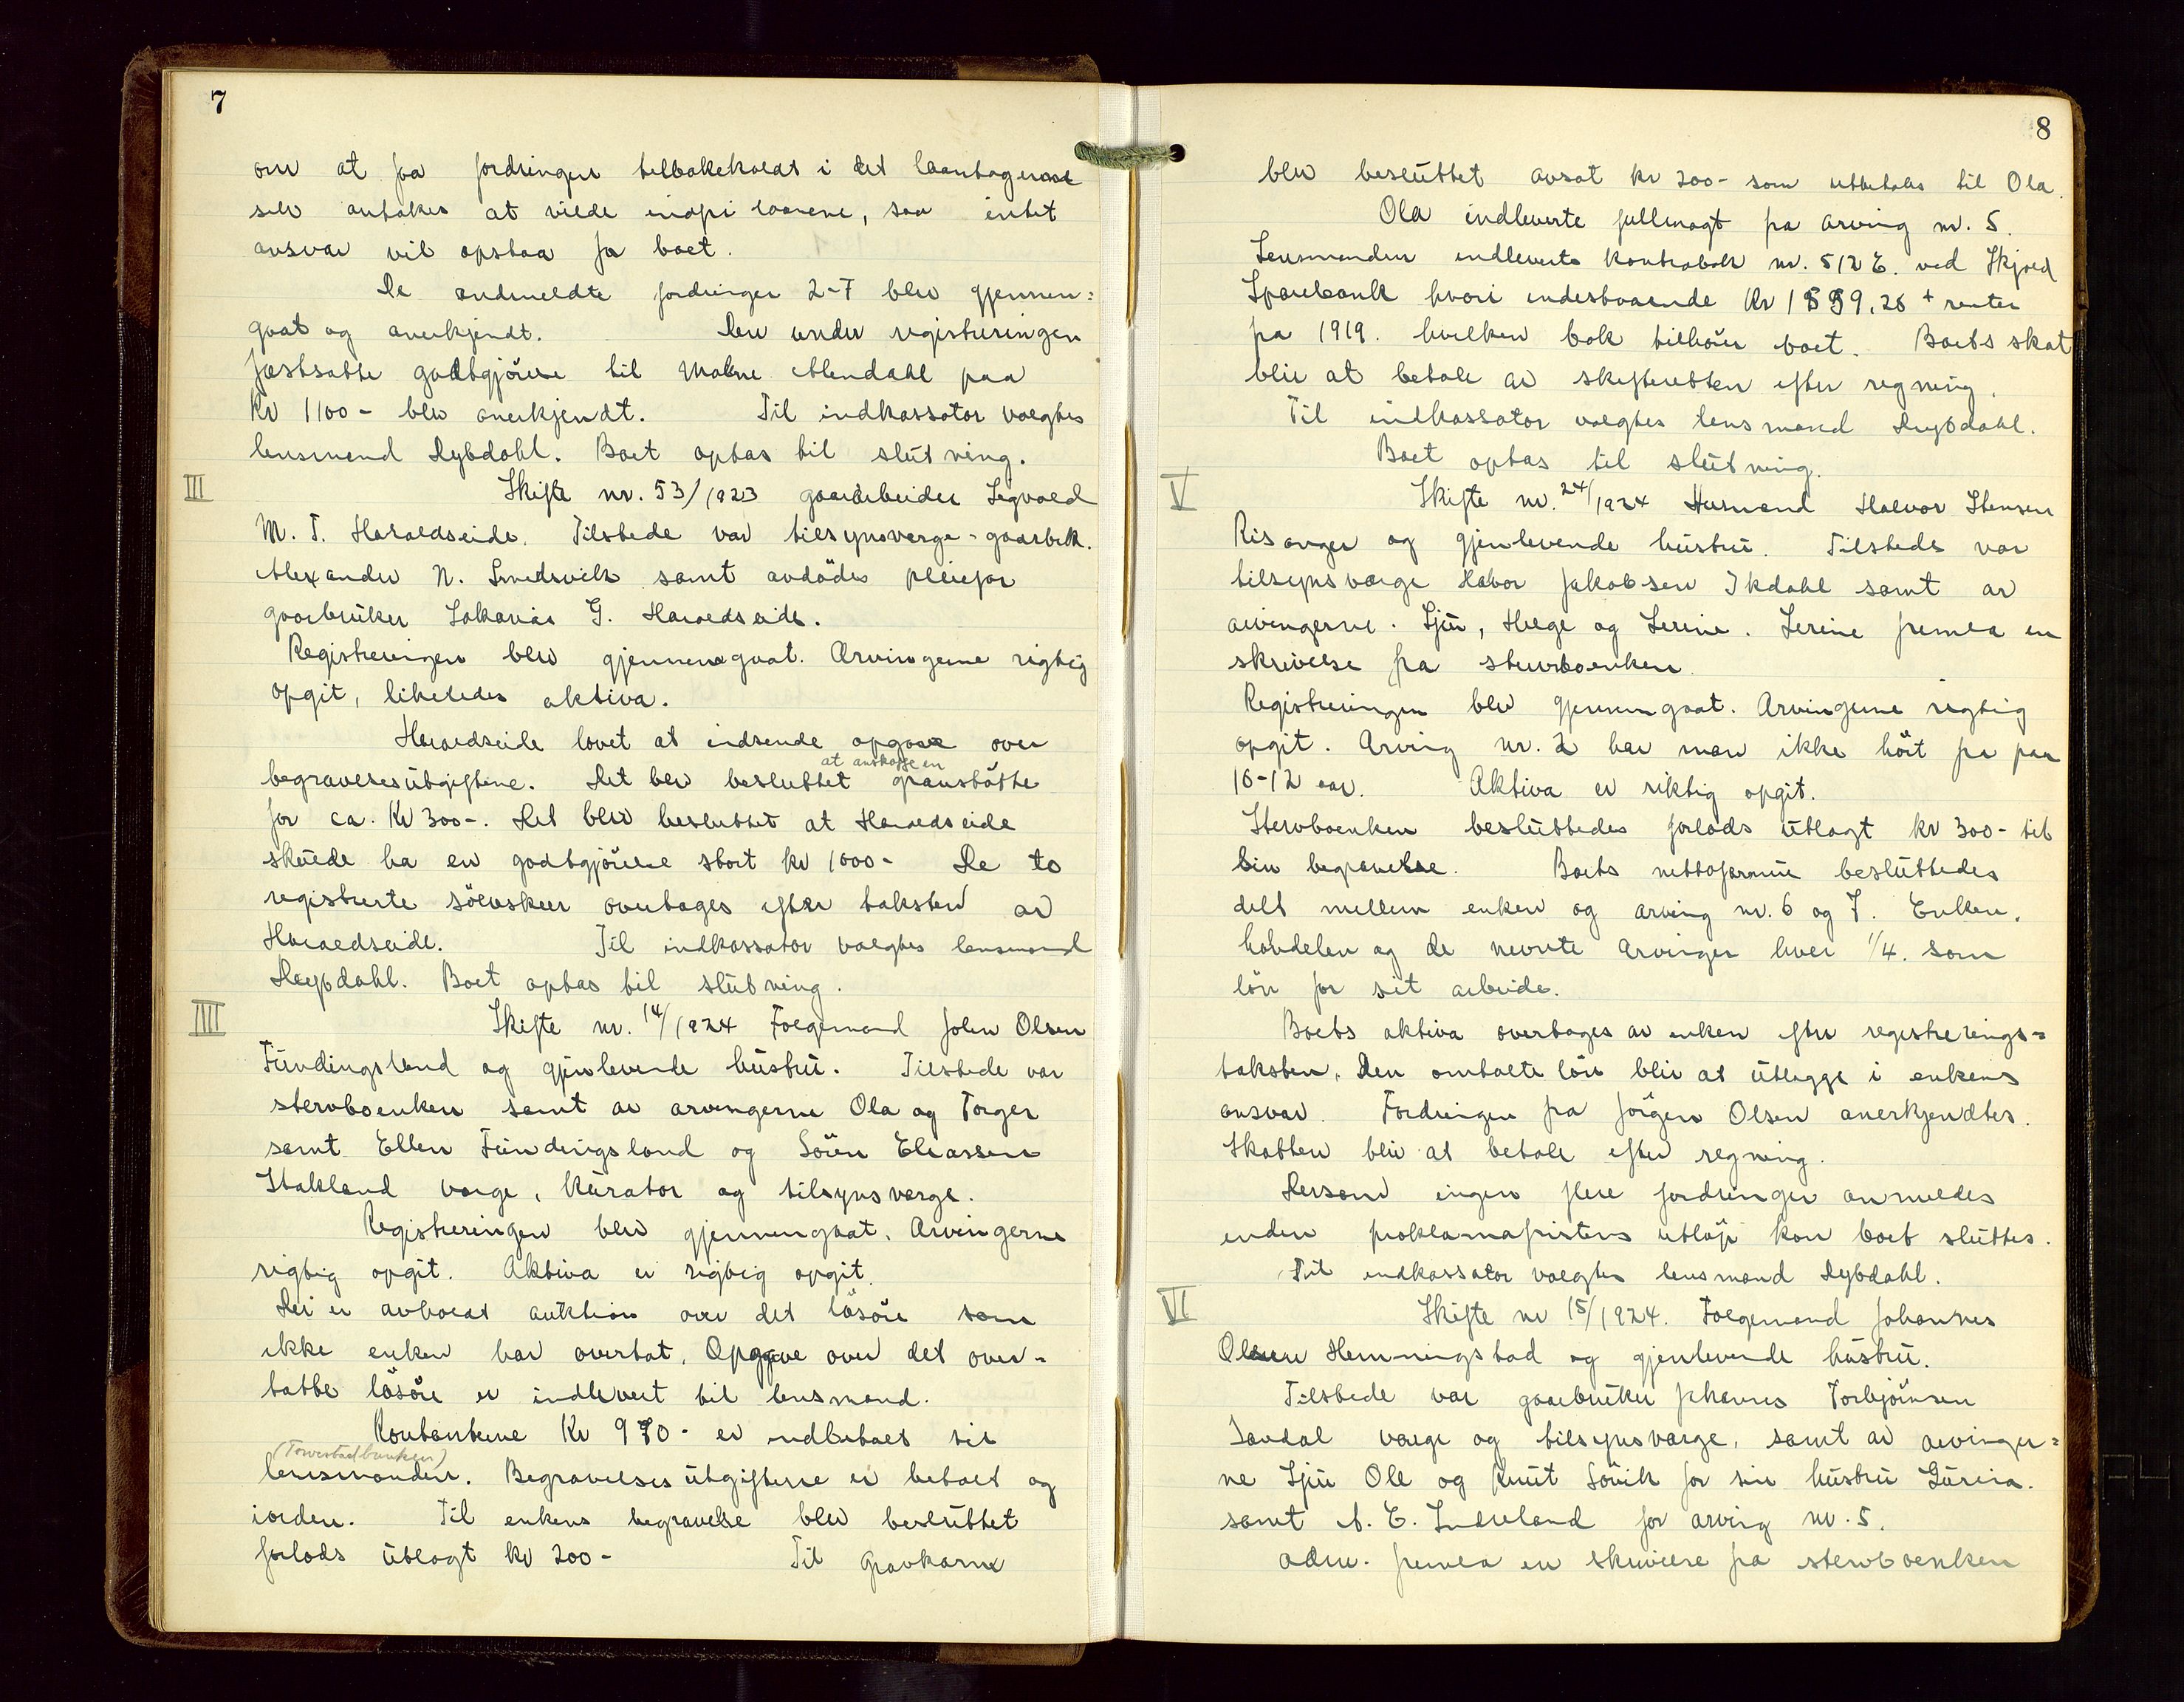 7
om at faa fordringer tilbakekaldt i det laantagerne
selv antakes at vilde indfri laanene, saa intet
ansvar vil opstaa for boet.
De anmeldte fordringer 2-7 blev gjennem-
gaat og anerkjendt. Den under registreringen
fastsatte godtgjörelse til Malene Alendahl paa
Kr 1100- blev anerkjendt. Til indkassator valgtes
lensmand Dybdahl. Boet optas til slutning.
III
Skifte nr. 53/1923 gaardarbeider Segvald
M. T. Haraldseide. Tilstede var tilsynsverge - gaardbrk.
Alexander N. Smedsvik samt avdödes pleiefar
gaardbruker Sakarias G. Haraldseide.
Registreringen blev gjennemgaat. Arvingerne rigtig
opgit, likeledes aktiva.
Haraldseide lovet at indsende opgave over
at anskaffe en
begravelsesutgiftene. Det blev besluttet gravstötte
for ca. Kr 300-. Det blev besluttet at Haraldseide
skulde ha en godtgjörelse stort kr 1000- De to
registrerte sölvskeer overtages efter taksten av
Haraldseide. Til indkassator valgtes lensmand
Dybdahl. Boet optas til slutning.
IIII
Skifte nr. 14/1924 Folgemand John Olsen
Fundingsland og gjenlevende hustru. Tilstede var
stervboenken samt av arvingerne Ola og Torger
samt Ellen Fundingsland og Sören Eliassen
Stakland verge, kurator og tilsynsverge.
Registreringen blev gjennemgaat. Arvingerne
rigtig opgit. Aktiva er rigtig opgit.
Der er avholdt auktion over det lösöre som
ikke enken har overtat. Opgave over det over-
tatte lösöre er indlevert til lensmand.
Kontantene Kr 970- er indbetalt til
(Torvestadbanken)
lensmanden. Begravelsesutgifterne er betalt og
iorden. Til enkens begravelse blev besluttet
forlods utlagt kr 200- Til gravkarm
8
blev besluttet avsat kr 200- som utbetales til Ola.
Ola indleverte fullmagt fra arving nr. 5.
Lensmanden indleverte kontrabok nr. 512 E. ved Skjold
Sparebank hvori indestaaende Kr 1859,26 + renter
fra 1919. hvilken bok tilhörer boet. Boets skat
blir at betale av skifteretten efter regning.
Til indkassator valgtes lensmand Dybdahl.
Boet optas til slutning.
V
Skifte nr. 24/1924 Husmand Halvor Stensen
Risanger og gjenlevende hustru. Tilstede var
tilsynsværge Halvor Jakobsen Ikdahl samt av
arvingerne. Sjur, Helge og Serine. Serine fremla en
skrivelse fra stervboenken.
Registreringen blev gjennemgaat. Arvingerne rigtig
opgit. Arving nr. 2 har man ikke hört fra paa
10-12 aar. Aktiva er riktig opgit.
Stervboenken besluttedes forlods utlagt kr 300- til
sin begravelse. Boets nettoformue besluttedes
delt mellem enken og arving nr. 6 og 7. Enken,
halvdelen og de nevnte arvinger hver 1/4. som
lön for sit arbeide.
Boets aktiva overtages av enken efter registrerings-
taksten. Den omtalte lön blir at utlegge i enkens
ansvar. Fordringen fra Jörgen Olsen anerkjendtes.
Skatten blir at betale efter regning.
Dersom ingen flere fordringer anmeldes
inden proklamafristens utlöp kan boet sluttes.
Til indkassator valgtes lensmand Dybdahl.
VI
Skifte nr 15/1924. Folgemand Johannes
Olsen Hemmingstad og gjenlevende hustru.
Tilstede var gaardbruker Johannes Torbjörnsen
Sandal verge og tilsynsverge, samt av arvinger-
ne Sjur Ole og Knut Sövik for sin hustru Guria.
samt A. E. Indreland for arving nr. 5.
adm. fremla en skrivelse fra stervboenken